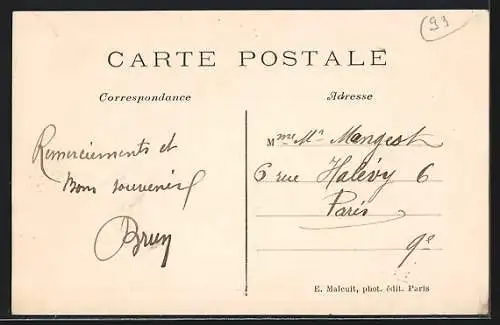 93
CARTE POSTALE
Correspondance
Adresse
Remerciements et
Bons souvenirs
Brun
Mme Mn Mangest
6 rue Halévy 6
Paris
9e
E. Malcuit, phot. édit. Paris